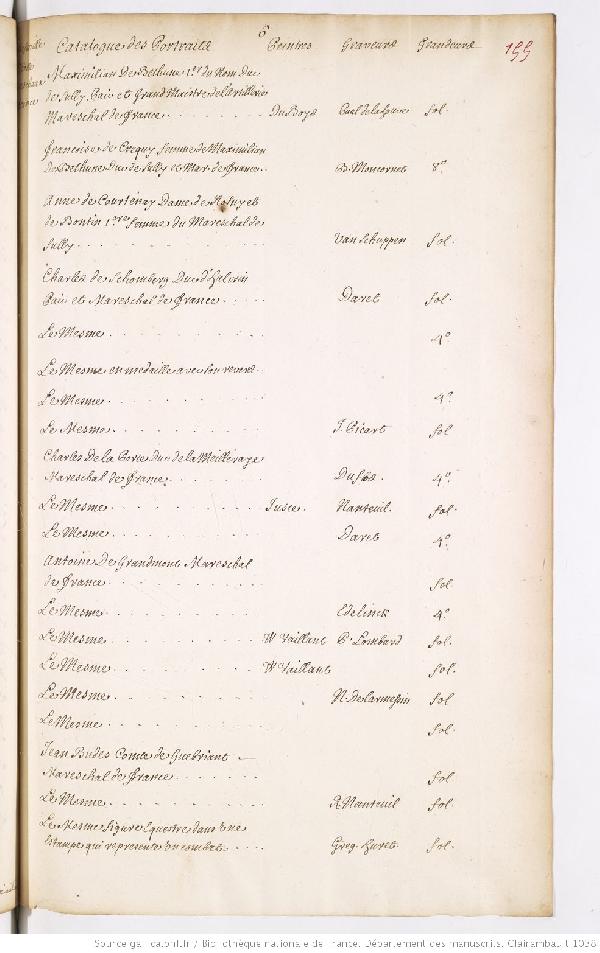 6
Catalogue des Portraits Peintres Graveurs Grandeurs 155
Maximilian De Bethune 1er du Nom Duc
de Sully Pair et Grand Maistre de l'Artillerie
Mareschal de france Du Boys fol.
françoise de Crequy femme de Maximilian
De Bethune Duc de Sully et Mar. de france B. Moncornet 8º
Anne de Courtenay Dame de et
de Bontin 1ere femme du Mareschal de
Sully Van Schuppen fol.
Charles de Schomberg Duc d'Haluin
Pair et Mareschal de france Daret fol.
Le Mesme 4º
Le Mesme en medaille avec son revers
Le Mesme 4º
Le Mesme J. Picart fol
Charles De la Porte Duc de la Meilleraye
Mareschal de france 4º
Le Mesme Juste Nanteuil fol.
Le Mesme Daret 4º
Antoine De Grandmont Mareschal
de france fol
Le Mesme Edelinck 4º
Le Mesme W Vaillant P. Lombard fol.
Le Mesme W Vaillant fol.
Le Mesme N. De Larmessin fol
Le Mesme fol.
Jean Budes Comte de Guebriant
Mareschal de france fol
Le Mesme R. Nanteuil fol.
Le Mesme figure Equestre dans une
Estampe qui represente un combat Greg. Huret fol.
Source gallica.bnf.fr / Bibliothèque nationale de France. Département des manuscrits. Clairambault 1038